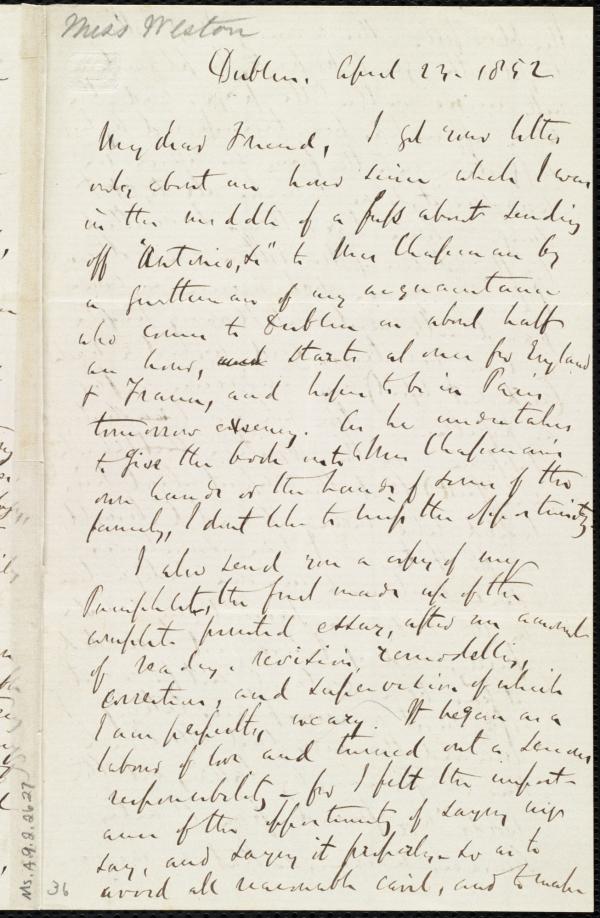 Miss Weston
Dublin. April 23. 1852
My dear Friend, I got your letter
only about an hour since when I was
in the middle of a fuss about sending
off "Antonio, &c" to Mrs Chapman by
a gentleman of my acquaintance
who comes to Dublin in about half
an hour, and starts at once for England
& France, and hopes to be in Paris
tomorrow evening. As he undertakes
to give the book into Mrs Chapman's
own hands or the hands of some of the
family, I don't like to miss the opportunity.
I also send you a copy of my
Pamphlet, the first made up of the
complete printed essay, after an amount
of reading, revision, remodelling,
correction, and supervision of which
I am perfectly weary. It began as a
labour of love and turned out a serious
responsibility – for I felt the import-
ance of the opportunity of saying my
say, and saying it properly – so as to
avoid all reasonable cavil, and to make
Ms. A.9.2.26.27
36